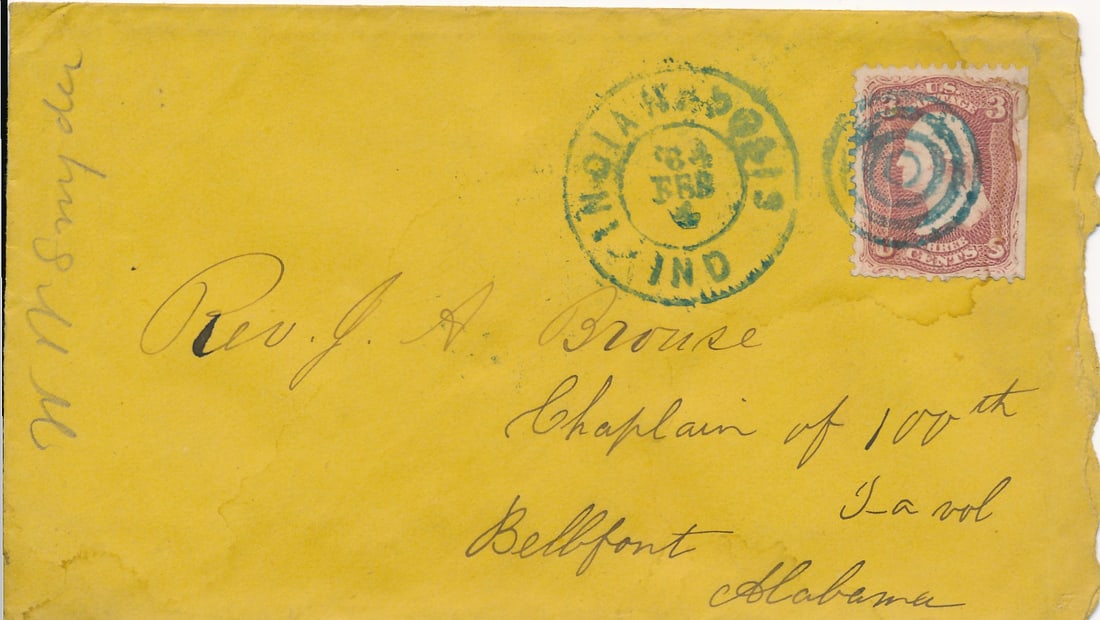 W W Snyder
INDIANAPOLIS
'64
FEB
4
IND
3 U.S. POSTAGE 3
U THREE CENTS S
Rev. J. A Brouse
Chaplain of 100th
I-a vol
Bellfont
Alabama